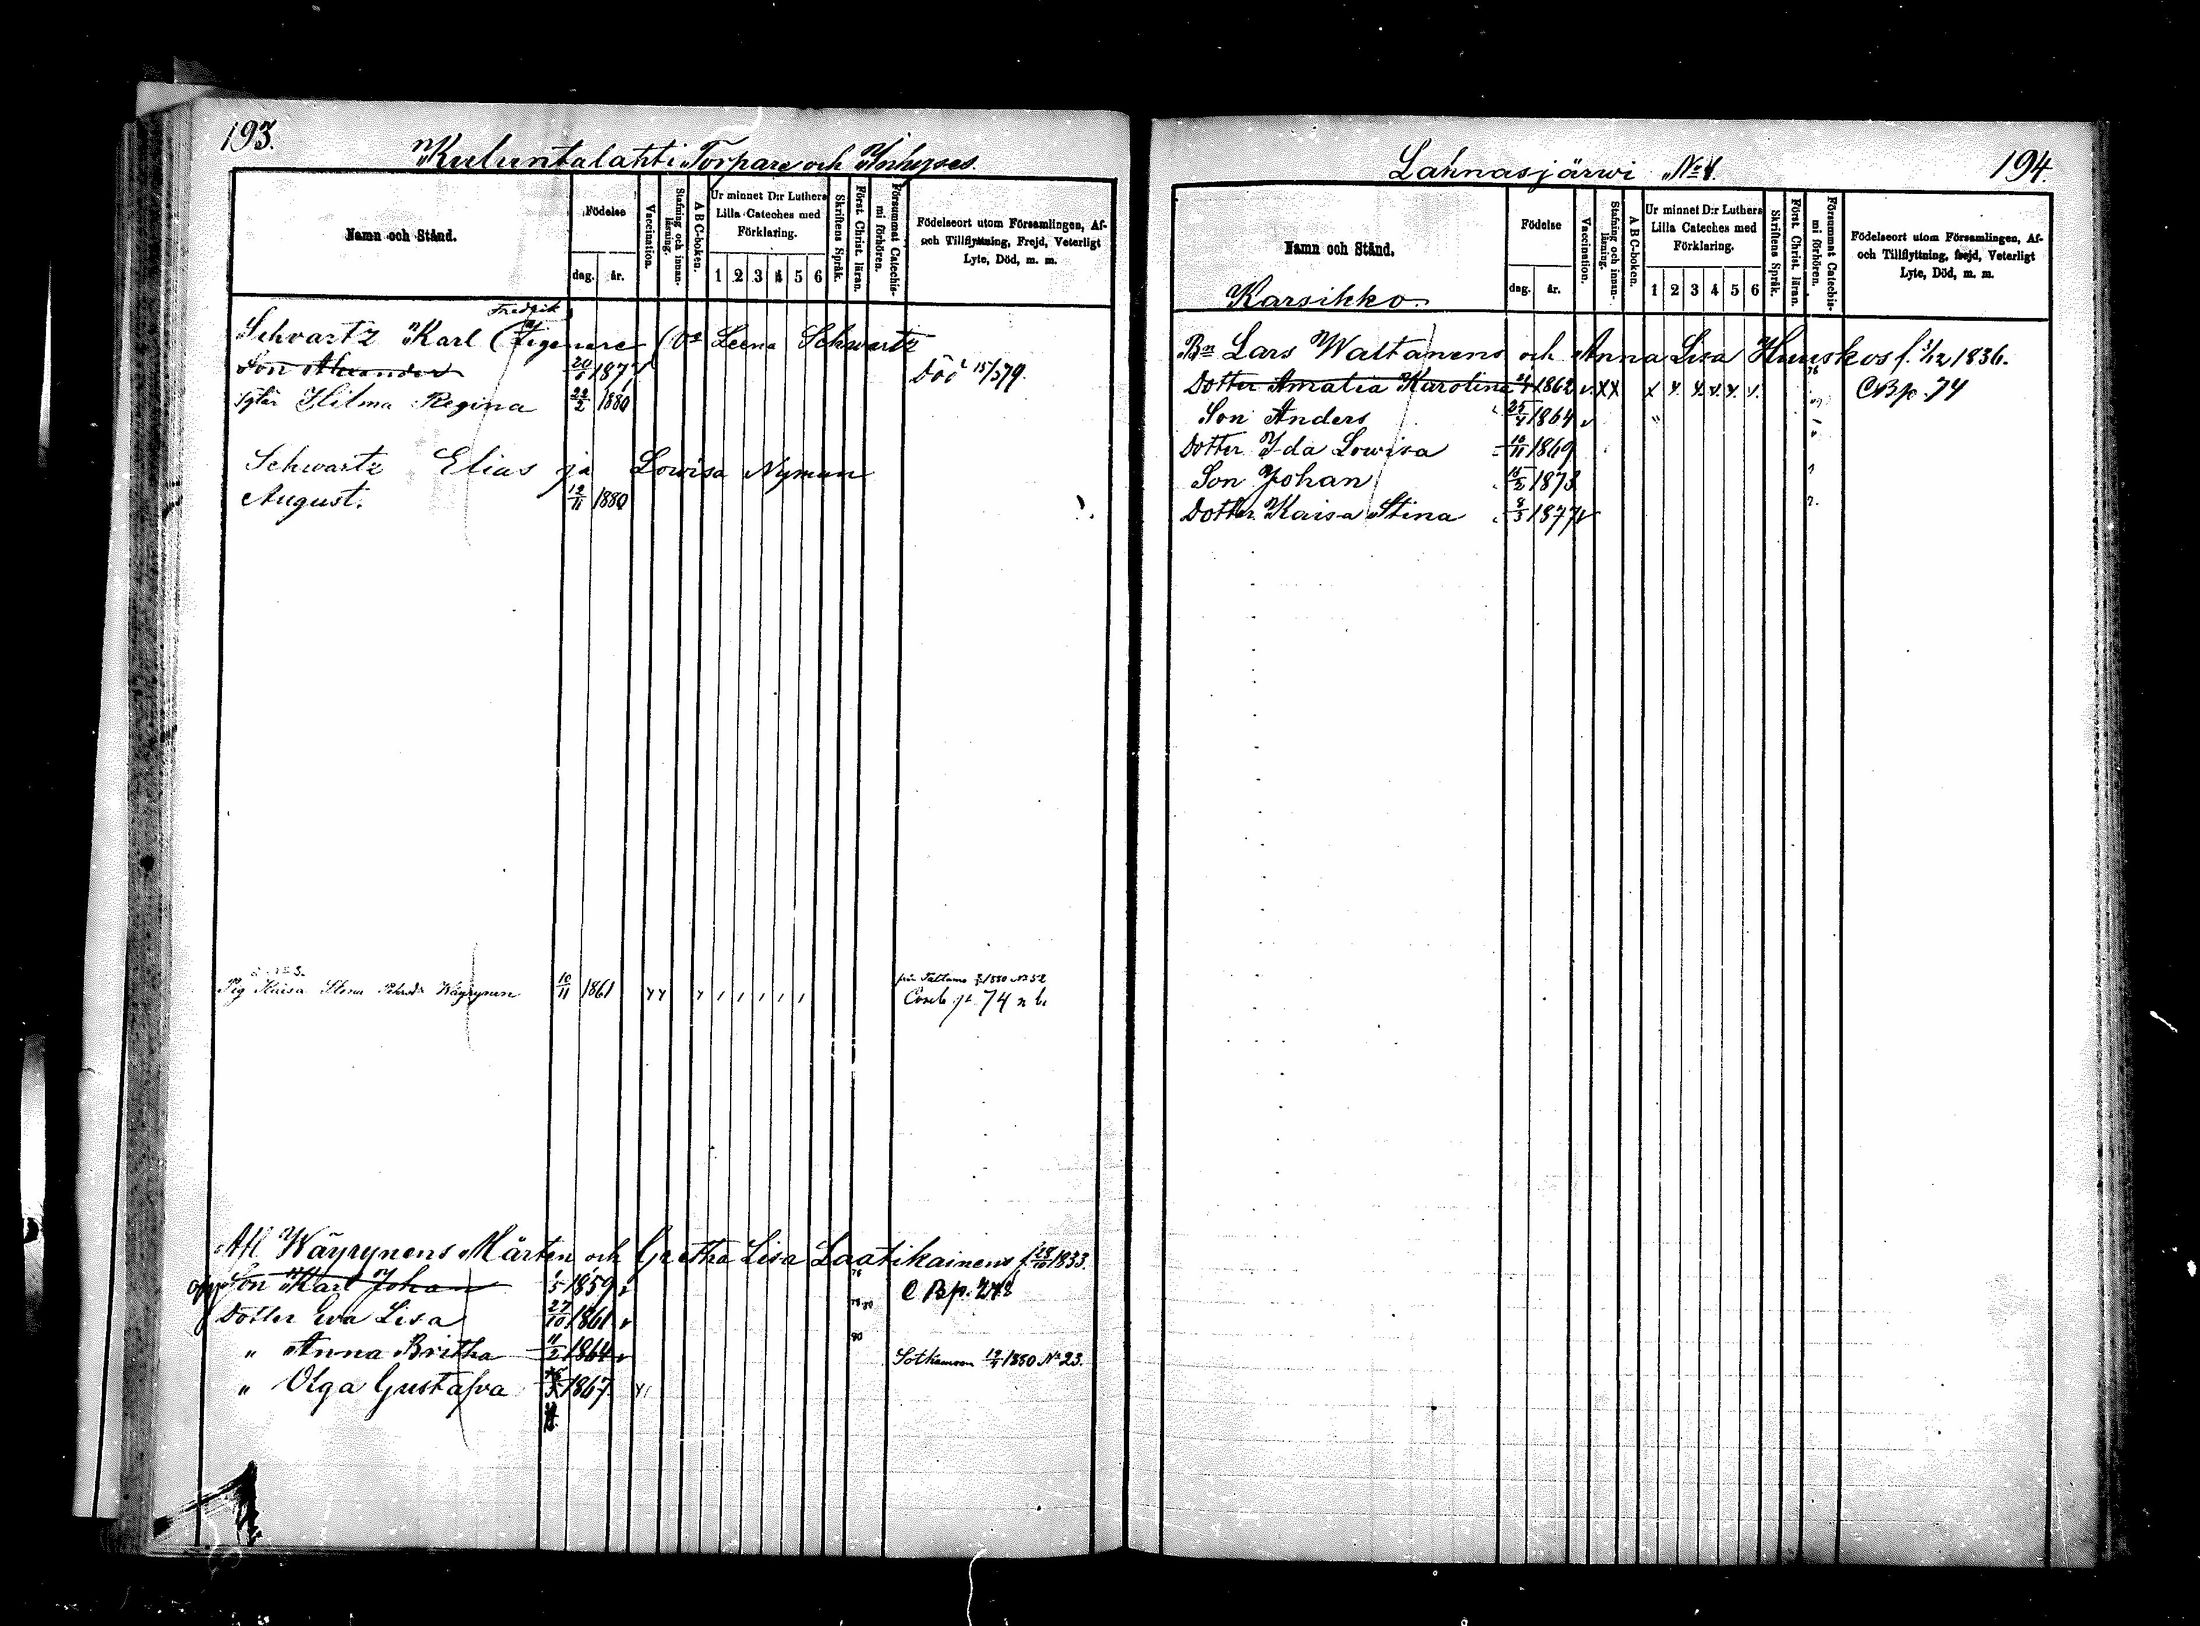 193.
Kuluntalahti Torpare och Inhyses.
Namn och Stånd.
Födelse
dag. år.
Vaccination.
Stafning och innan-läsning.
A B C-boken.
Ur minnet D:r Luthers Lilla Cateches med Förklaring.
1 2 3 4 5 6
Skriftens Språk.
Först. Christ. läran.
Försummat Catechis-mi förhören.
Födelseort utom Församlingen, Af- och Tillflyttning, Frejd, Veterligt Lyte, Död, m. m.
Fredrik
Schvartz Karl (Zigenare) Leena Schwartz
Son Alexander 1877 Död 15/5 79.
Hilma Regina 22/2 1880
Schwartz Elias ja Lowisa Nyman
August. 12/11 1880
Pig Kaisa Stina Wäyrynen 10/11 1861 från Paltamo 1880 No 52
p. 74 n b.
Afl Wäyrynens Mårten och Gretha Lisa Laatikainens f. 28/10 1833.
Son Karl Johan 1/5 1859 v 76 C B p.
Dotter Eva Lisa 27/10 1861 v
" Anna Britha 11/2 1864 v 80 Sotkamoon 1880 No 23.
" Olga Gustafva 1867
194.
Lahnasjärwi No 1.
Namn och Stånd.
Födelse
dag. år.
Vaccination.
Stafning och innan-läsning.
A B C-boken.
Ur minnet D:r Luthers Lilla Cateches med Förklaring.
1 2 3 4 5 6
Skriftens Språk.
Först. Christ. läran.
Försummat Catechis-mi förhören.
Födelseort utom Församlingen, Af- och Tillflyttning, frejd, Veterligt Lyte, Död, m. m.
Karsikko.
Bn Lars Waltanens och Anna Lisa Huuskos f. 3/12 1836.
Dotter Amalia Karolina 1862 v. x x x x. x. x. x. x. 76 CB p. 74
Son Anders 25/4 1864 v
Dotter Ida Lowisa 1869
Son Johan 1873
Dotter Kaisa Stina 8/3 1877 v